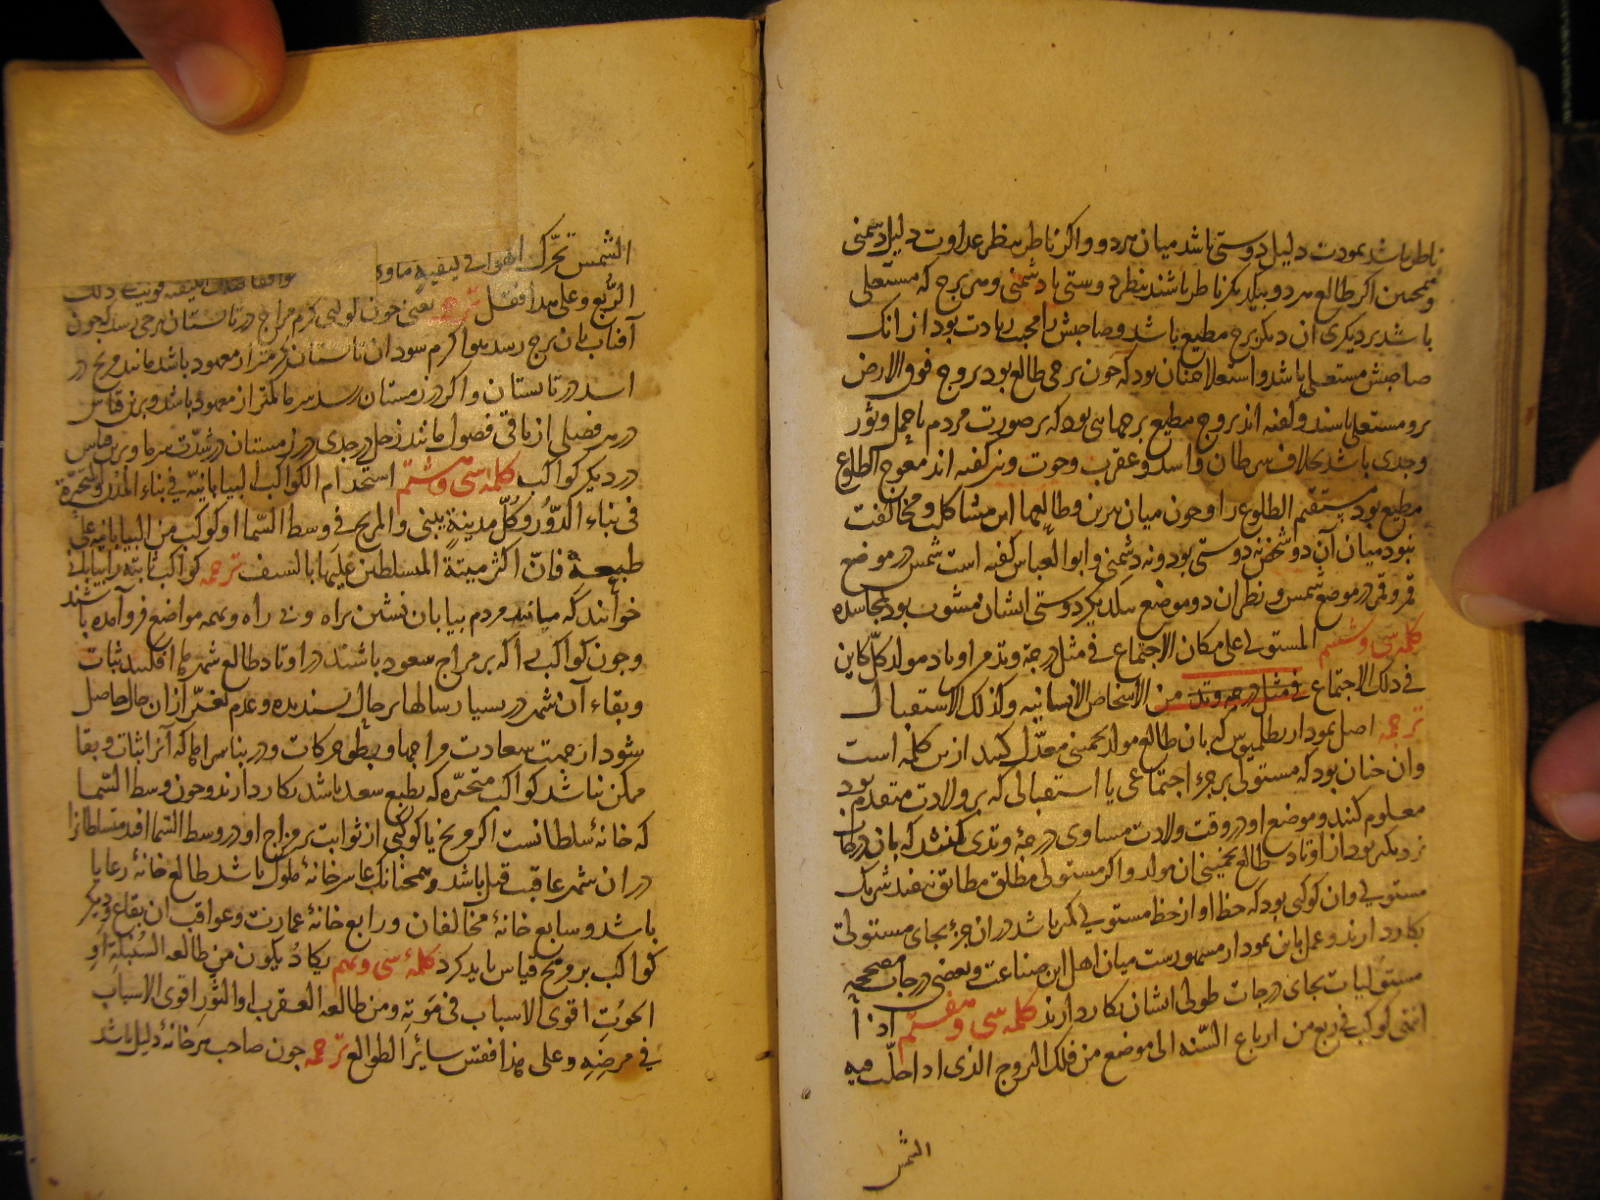 ناظر باشد بمودت دلیل دوستی باشد میان هر دو و اکر ناظر بنظر عداوت دلیل دشمنی
و همچنین اکر طالع هر دو بیکدیکر ناظر باشند بنظر دوستی یا دشمنی و هر برج که مستعلی
باشد بر دیکری ان دیکر برج مطیع باشد و صاحبش را محبت زیادت بود از انک
صاحبش مستعلی باشد و استعلا چنان بود که چون برجی طالع بود بروج فوق الارض
برو مستعلی باشند و کفته اند بروج مطیع برجهایی بود که بر صورت مردم یا حمل و ثور
و جدی باشد بخلاف سرطان و اسد و عقرب و حوت و نیز کفته اند معوج الطلوع
مطیع بود مستقیم الطلوع را و چون میان نیرین و طالعها این مشاکلت و مخالفت
نبود میان آن دو شخص نه دوستی بود و نه دشمنی و ابو العباس کفته است شمس در موضع
قمر و قمر در موضع شمس و نظر ان دو موضع بیکدیکر دوستی ایشان مشوب بود بحاسده
کلمه سی و ششم المستولی علی مکان الاجتماع فی مثل درجة وتد من اوتاد مولد کل کاین
فی ذلک الاجتماع فی مثل درجه وتد من الاشخاص الانسانیه و کذلک الاستقبال
ترجمه اصل نمودار بطلمیوس که بان طالع موالید تخمینی معدّل کنند ازین کلمه است
وان چنان بود که مستولی بر جزء اجتماعی یا استقبالی که بر ولادت متقدم بود
معلوم کنند و موضع او در وقت ولادت مساوی درجهٔ وتدی کنند که بان درجه
نزدیکتر بود از اوتاد طالع تخمینی ان مولد و اکر مستولی مطلق مطابق نیفتد شریک
مستولی وان کوکبی بود که حظ او از حظ مستولی کمتر باشد در ان جزء بجای مستولی
بکار دارند و عمل باین نمودار مشهورست میان اهل این صناعت و بعضی درجات مصححه
مستولیات بجای درجات طولی ایشان بکار دارند کلمه سی و هفتم اذا
انتهی کوکب فی ربع من ارباع السّنه الی موضع من فلک البروج الذی اذا حلّت فیه
الشمس
الشمس تحرّک الهوا فی کیفیة ما و
الرّبع و علی هذا فقس ترجمه یعنی چون کوکبی کرم مزاج در تابستان ببرجی رسد که چون
آفتاب بان برج رسد هوا کرم شود ان تابستان کرمتر از معهود باشد مانند مریخ در
اسد در تابستان و اکر در زمستان رسد سرما کمتر از معهود باشد و برین قیاس
در هر فصلی از باقی فصول مانند زحل در جدی در زمستان در شدّت سرما و برین قیاس
در دیکر کواکب کلمه سی و هشتم استخدام الکواکب البیابانیّه فی بناء المدن و المتحیّرة
فی بناء الدّور و کلّ مدینةٍ یبنی و المریخ فی وسط السّما او کوکب من البیابانیه علی
طبیعته فانّ اکثر میتة المسلطین علیها بالسیف ترجمه کواکب ثابته را بیابانی
خوانند که میانند مردم بیابان نشین براه و نی راه و بهمه مواضع فرو آمده باشند
و چون کواکبی که بر مزاج سعود باشند در اوتاد طالع شهرها افکنند ثبات
و بقاء آن شهر در بسیار سالها بر حال پسندیده و عدم تغیّر از ان حال حاصل
شود از جهت سعادت مزاجها و بطؤ حرکات و در بنا سراها که آنرا ثبات و بقا
ممکن نباشد کواکب متحیّره که بطبع سعد باشند بکار دارند و چون وسط السّما
که خانهٔ سلطانست اکر مریخ یا کوکبی از ثوابت بر مزاج او در وسط السّما افتد متسلطانرا
در ان شهر عاقبت قتل باشد و همچنانک عاشر خانهٔ ملوک باشد طالع خانهٔ رعایا
باشد و سابع خانهٔ مخالفان و رابع خانهٔ عمارت و عواقب ان بقاع و دیکر
کواکب بر مریخ قیاس باید کرد کلمهٔ سی و نهم یکاد یکون من طالعه السّنبلة او
الحوت اقوی الاسباب فی موته و من طالعه العقرب او الثور اقوی الاسباب
فی مرضه و علی هذا فقس سائر الطوالع ترجمه چون صاحب هر خانهٔ دلیل باشد